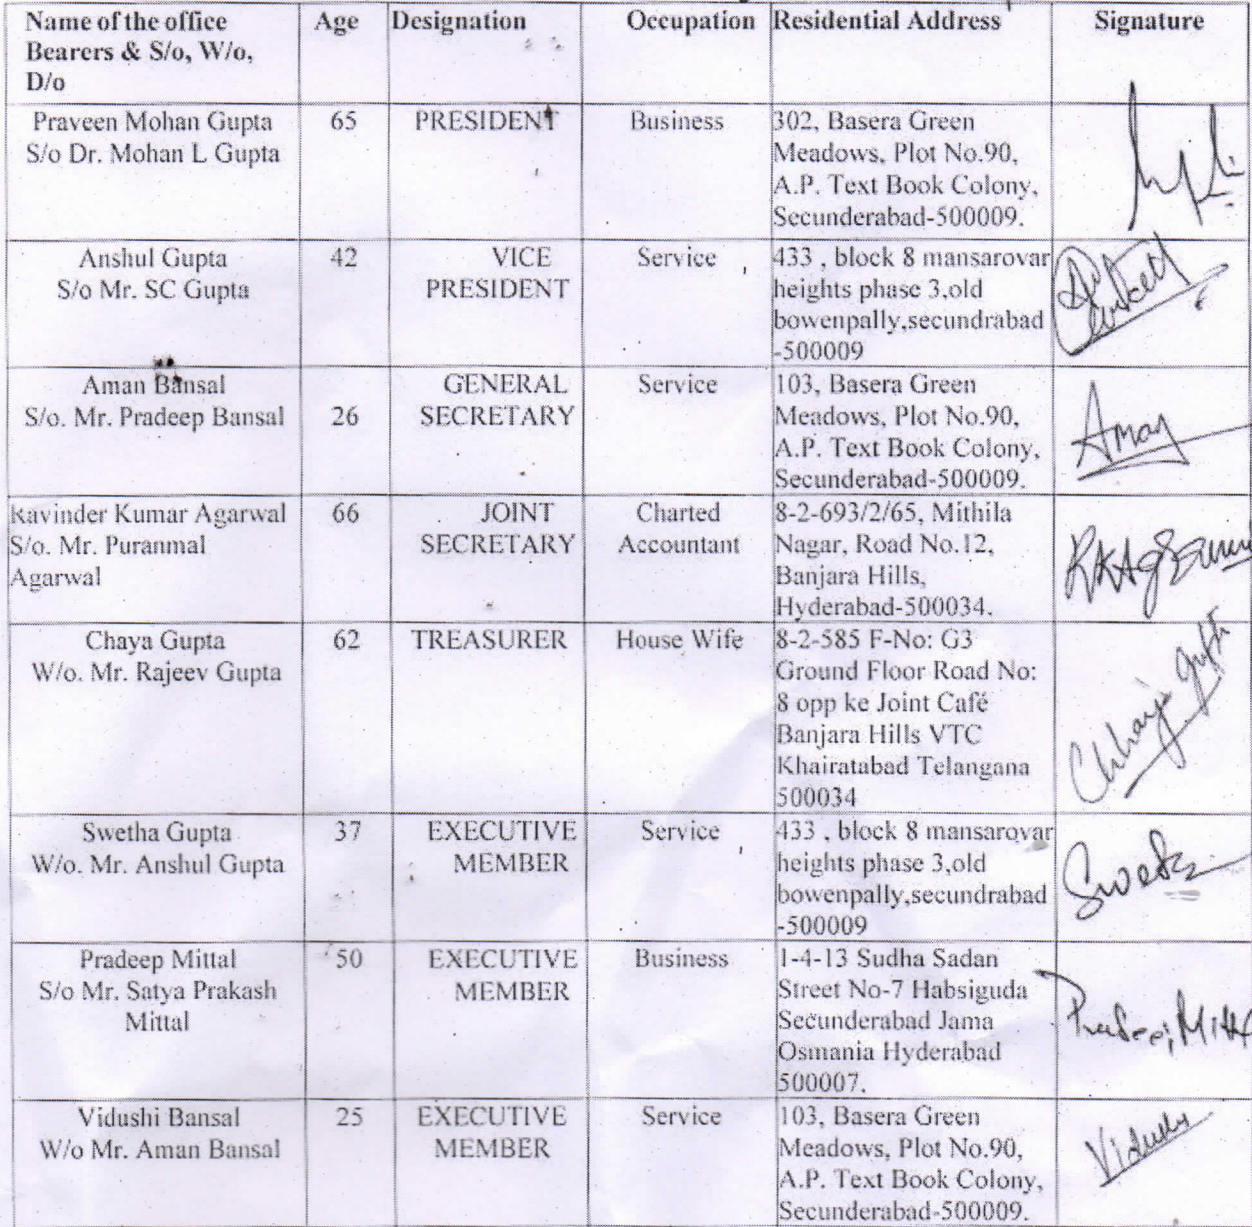 Name of the office Bearers & S/o, W/o, D/o | Age | Designation | Occupation | Residential Address | Signature
Praveen Mohan Gupta
S/o Dr. Mohan L Gupta
65
PRESIDENT
Business
302, Basera Green
Meadows, Plot No.90,
A.P. Text Book Colony,
Secunderabad-500009.
Anshul Gupta
S/o Mr. SC Gupta
42
VICE
PRESIDENT
Service
433 , block 8 mansarovar
heights phase 3,old
bowenpally,secundrabad
-500009
Aman Bansal
S/o. Mr. Pradeep Bansal
26
GENERAL
SECRETARY
Service
103, Basera Green
Meadows, Plot No.90,
A.P. Text Book Colony,
Secunderabad-500009.
Aman
Ravinder Kumar Agarwal
S/o. Mr. Puranmal
Agarwal
66
JOINT
SECRETARY
Charted
Accountant
8-2-693/2/65, Mithila
Nagar, Road No.12,
Banjara Hills,
Hyderabad-500034.
Chaya Gupta
W/o. Mr. Rajeev Gupta
62
TREASURER
House Wife
8-2-585 F-No: G3
Ground Floor Road No:
8 opp ke Joint Café
Banjara Hills VTC
Khairatabad Telangana
500034
Chhaya Gupta
Swetha Gupta
W/o. Mr. Anshul Gupta
37
EXECUTIVE
MEMBER
Service
433 , block 8 mansarovar
heights phase 3,old
bowenpally,secundrabad
-500009
Pradeep Mittal
S/o Mr. Satya Prakash
Mittal
50
EXECUTIVE
MEMBER
Business
1-4-13 Sudha Sadan
Street No-7 Habsiguda
Secunderabad Jama
Osmania Hyderabad
500007.
Vidushi Bansal
W/o Mr. Aman Bansal
25
EXECUTIVE
MEMBER
Service
103, Basera Green
Meadows, Plot No.90,
A.P. Text Book Colony,
Secunderabad-500009.
Vidushi